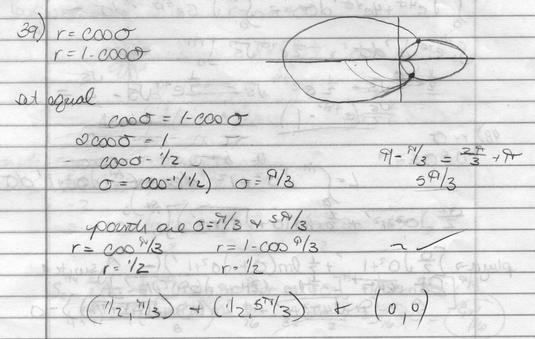 39) r = cosσ
r = 1-cosσ
set equal
cosσ = 1-cosσ
2cosσ = 1
cosσ - 1/2
σ = cos⁻¹(1/2) σ = π/3
π - π/3 = 2π/3 + π
5π/3
points are σ = π/3 + 5π/3
r = cos π/3 r = 1-cos π/3
r = 1/2 r = 1/2
(1/2, π/3) + (1/2, 5π/3) + (0,0)